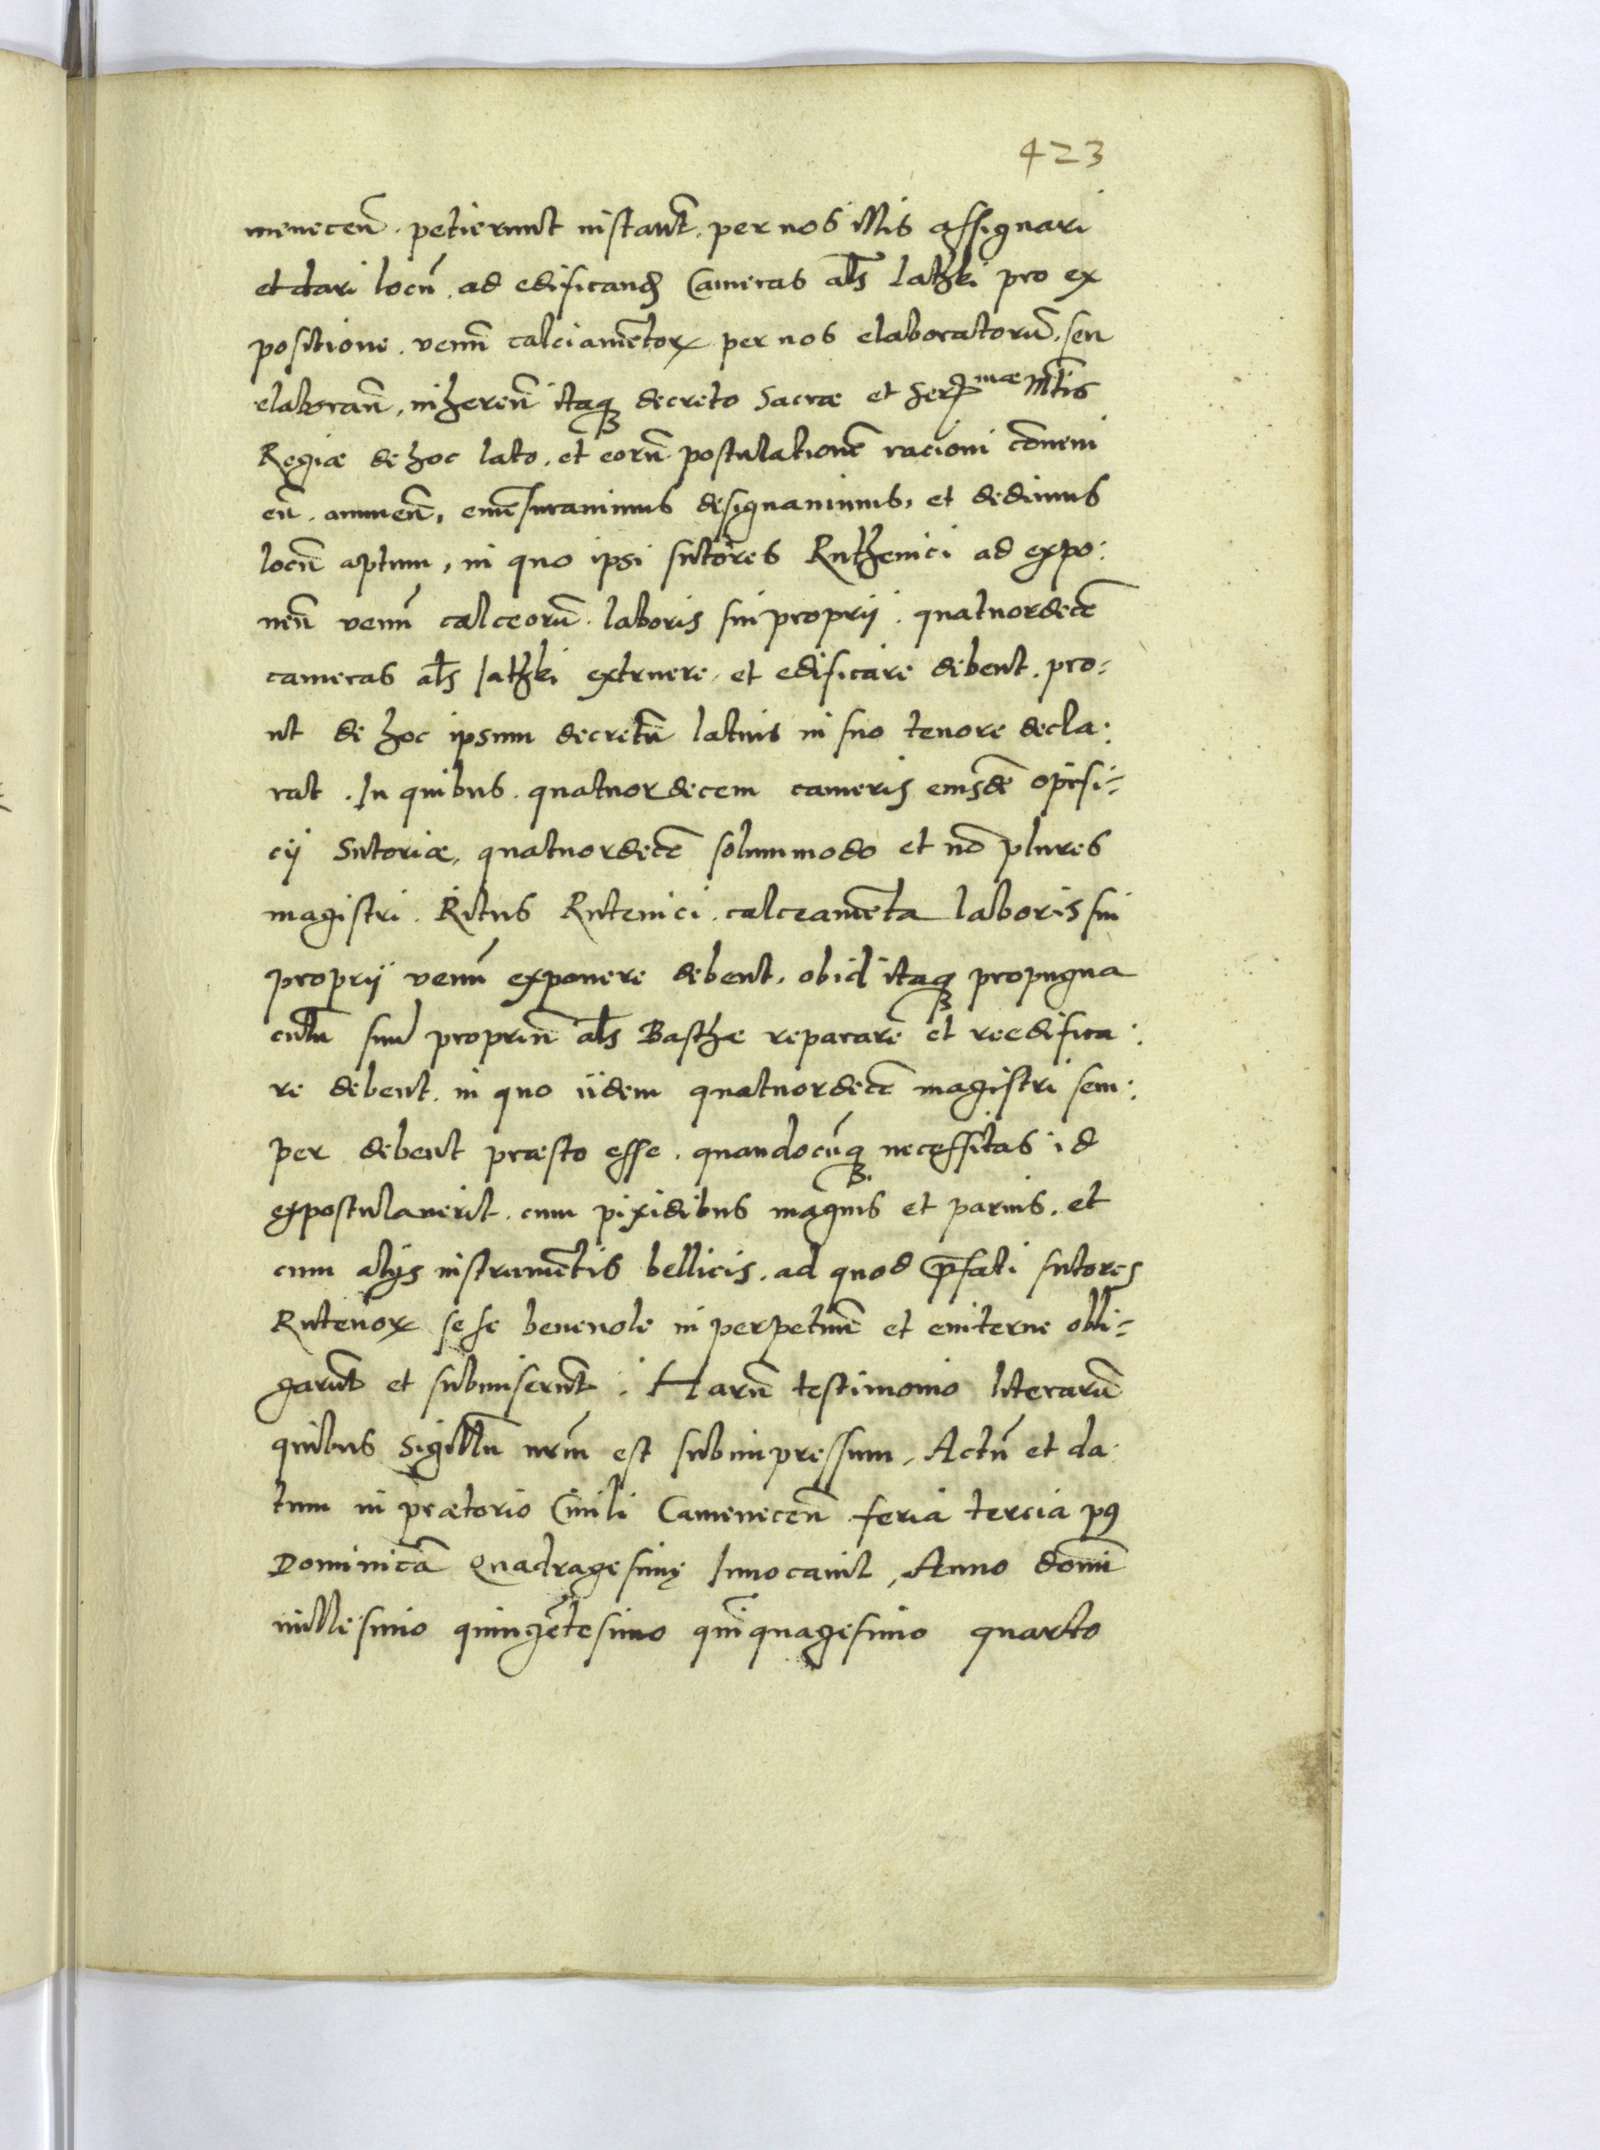 423
menecen̄. petierunt instant̄. per nos illis assignari
et dari locū. ad edificand̄ Cameras al̄s Iathki pro ex
positione. venū calciamētorꝝ per nos elaboratorū. seu
elaboran̄, inheren̄ itaqꝫ decreto Sacræ et Ser̄mæ M̄tis
Regiæ de hoc lato. et eorū postulationē racioni cōueni
en̄. annuen̄, emēsurauimus designauimus, et dedimus
locū aptum, in quo ipsi sutores Ruthenici ad expo:
nen̄ venū calceorū. laboris sui proprii. quatuordecē
cameras al̄s Iathki extruere, et edificare debent. pro:
ut de hoc ipsum decretū latius in suo tenore decla:
rat. In quibus. quatuordecem cameris eiusdē opifi:
cij Sutoriæ, quatuordecē solummodo et nō plures
magistri. Ritus Rutenici. calceamēta laboris sui
proprij venū exponere debent. obid itaqꝫ propugna
culū suū propriū al̄s Basthæ reparare et reedifica:
re debent. in quo iidem quatuordecē magistri sem:
per debent præsto esse. quandocūqꝫ necessitas id
expostulauerit. cum pixidibus magnis et paruis. et
cum alijs instrumētis bellicis. ad quod p̄fati sutores
Rutenorꝝ sese beneuole in perpetuū et euiterne obli:
garūt et submiserūt. Harū testimonio literarū
quibus Sigillū nr̄m est subimpressum, Actū et da:
tum in prætorio Ciuili Camenecen̄ feria tercia pꝰ
Dominicā Quadragesimę Inuocauit, Anno domī
millesimo quingētesimo quīquagesimo quarto